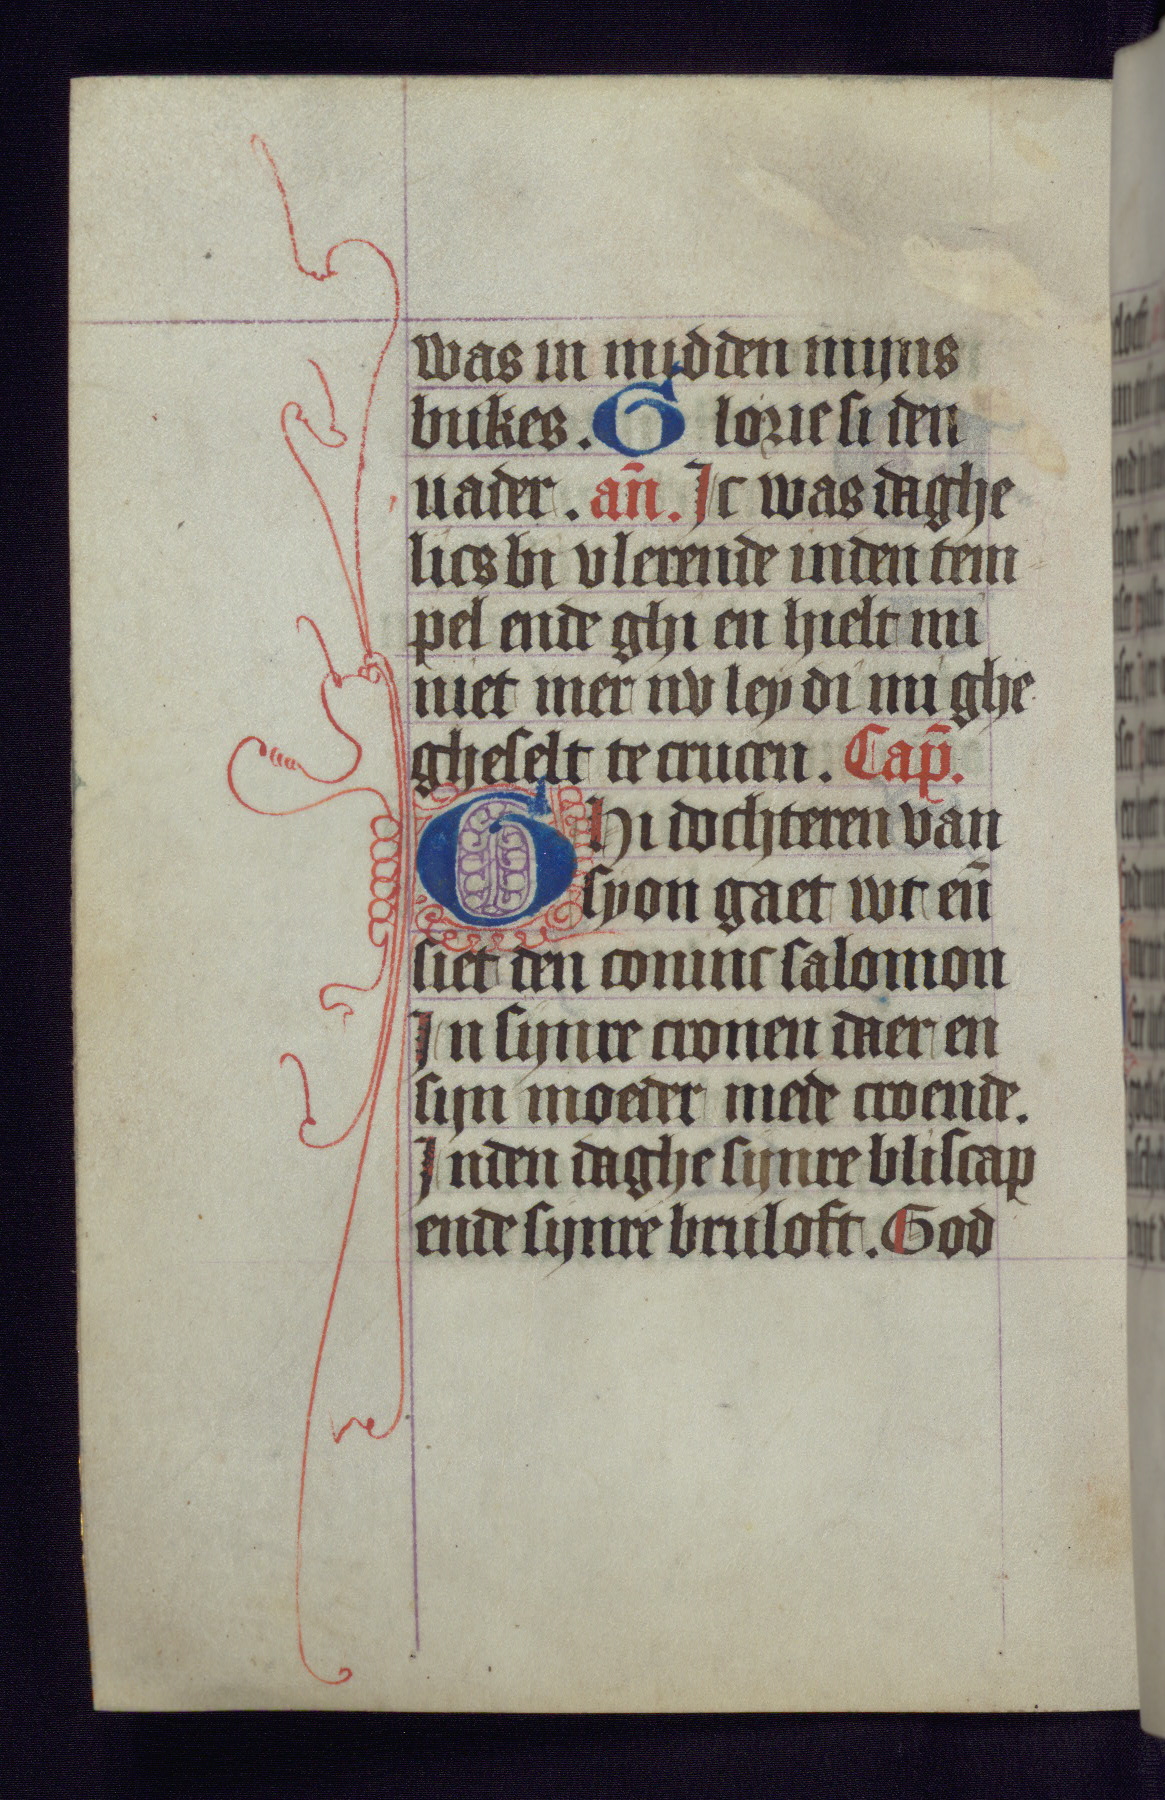 was in midden mijns
bukes. Glorie si den
uader. an̄. Ic was daghe
lics bi v lerende inden tem
pel ende ghi en hielt mi
niet mer nv ley di mi ghe
gheselt te crucen. Cap̄.
Ghi dochteren van
syon gaet wt en̄
siet den coninc salomon
In sijnre cronen daer en
sijn moeder mede croende.
Inden daghe sijnre bliscap
ende sijnre bruloft. God